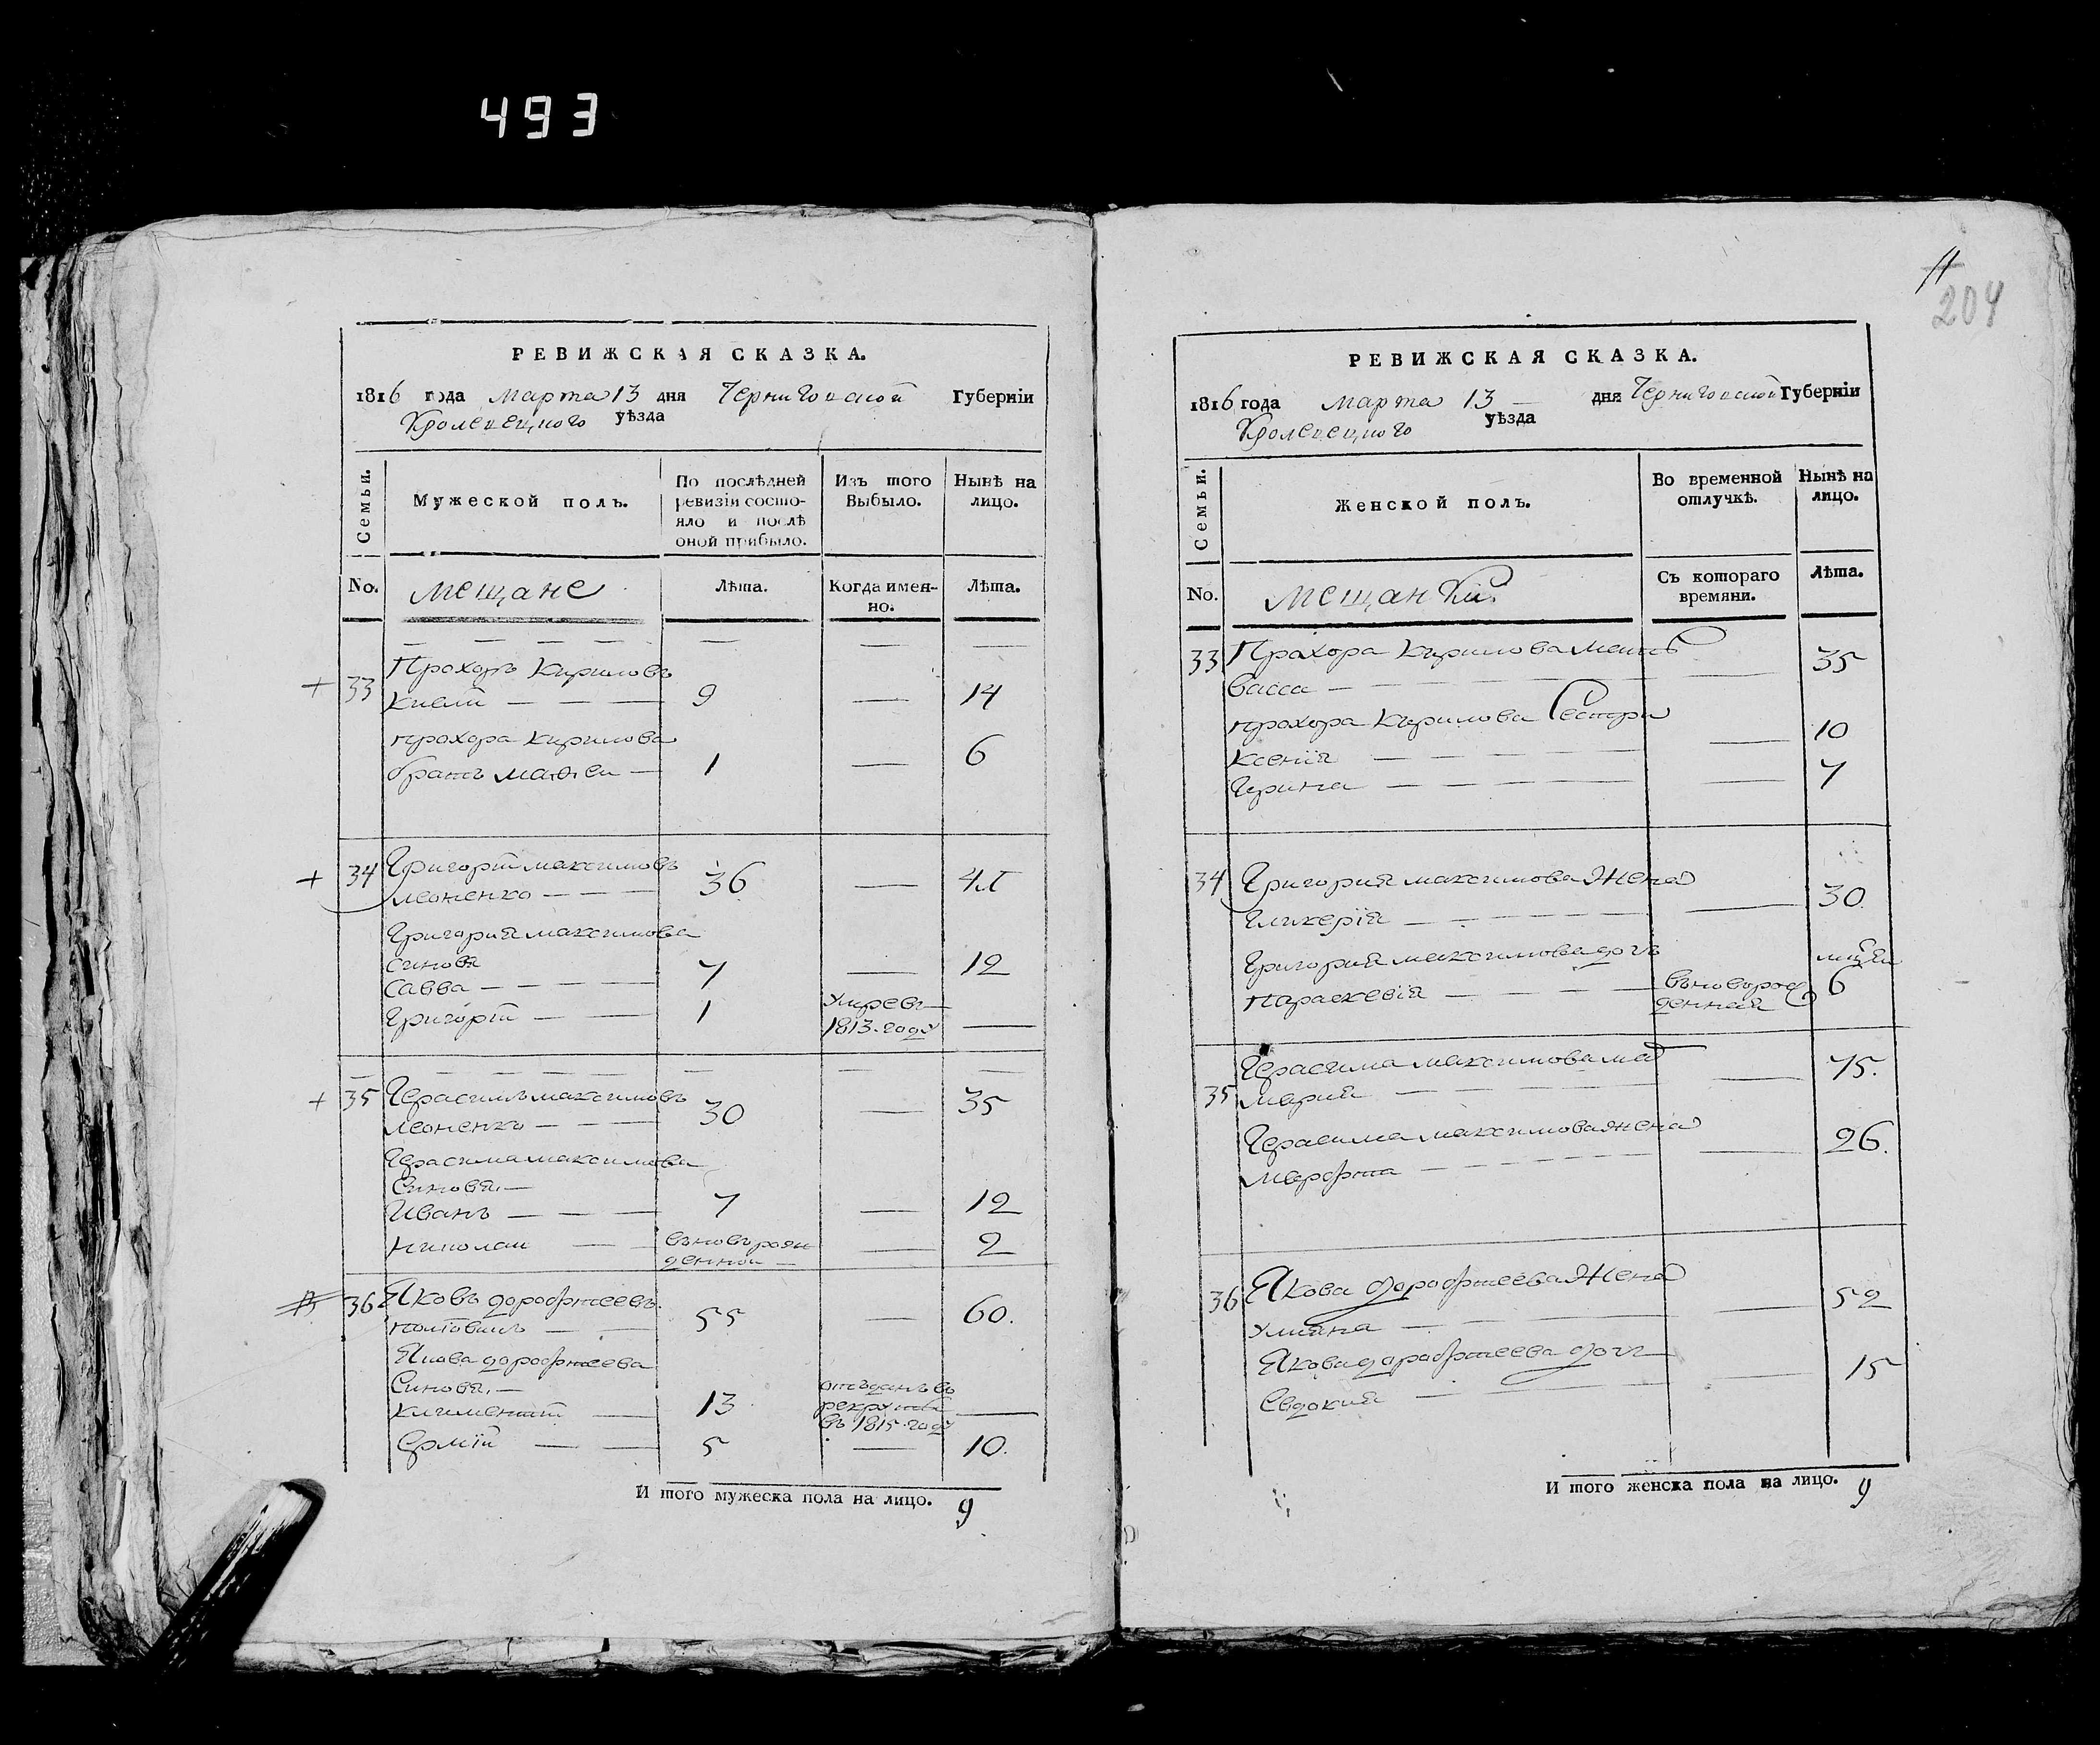 493
РЕВИЖСКАЯ СКАЗКА.
1816 года Марта 13 дня Черниговской Губернiи
Кролевецкого уѣзда
Семьи.
Мужеской полъ.
По послѣдней
ревизiи состо-
яло и послѣ
оной прибыло.
Изъ того
Выбыло.
Нынѣ на
лицо.
No.
Мещане
Лѣта.
Когда имен-
но.
Лѣта.
33 Прохоръ Кириловъ
9 14
Прохора Кирилова
братъ Матвеи 1 6
34 Григорiй Максимовъ
Леоненко 36 41
Григория Максимова
синовя
Савва 7 12
Григорiй 1 Умревъ
1813 году
35 Герасимъ Максимовъ
Леоненко 30 35
Герасима Максимова
Синовя
Иванъ 7 12
Николаи въновърож
деннои 2
36 Яковъ Дорофтеевъ
55 60.
Якова Дорофтеева
Синовя
Климентiй 13 отъданъ въ
рекрути
въ 1815 году
Ермiй 5 10.
И того мужеска пола на лицо. 9
11
204
РЕВИЖСКАЯ СКАЗКА.
1816 года Марта 13 дня Черниговской Губернiи
Кролевецкого уѣзда
Семьи.
Женской полъ.
Во временной
отлучкѣ.
Нынѣ на
лицо.
No.
Мещанки
Съ котораго
времяни.
Лѣта.
33 Прохора Кирилова мать
Васса 35
Прохора Кирилова Сестри
Ксенiя 10
Ирина 7
34 Григория Максимова Жена
Гликерiя 30
Григория Максимова дочъ
Параскевiя въноворож
денная 6
35 Герасима Максимова ма
Мария 75.
Герасима Максимова жена
Марфта 26.
36 Якова Дорофтеева Жена
Улияна 52
Якова Дорофтеева дочъ
Евдокия 15
И того женска пола на лицо. 9